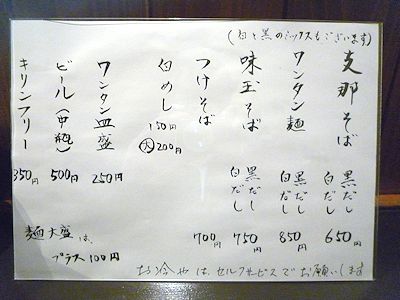 (白と黒のミックスもございます)
支那そば 黒だし 白だし 650
ワンタン麺 黒だし 白だし 850
味玉そば 黒だし 白だし 750
つけそば 700円
白めし 150円 大200円
ワンタン皿盛 250円
ビール(中瓶) 500円
キリンフリー 350円
麺大盛は、
プラス100円
お冷やはセルフサービスでお願いします